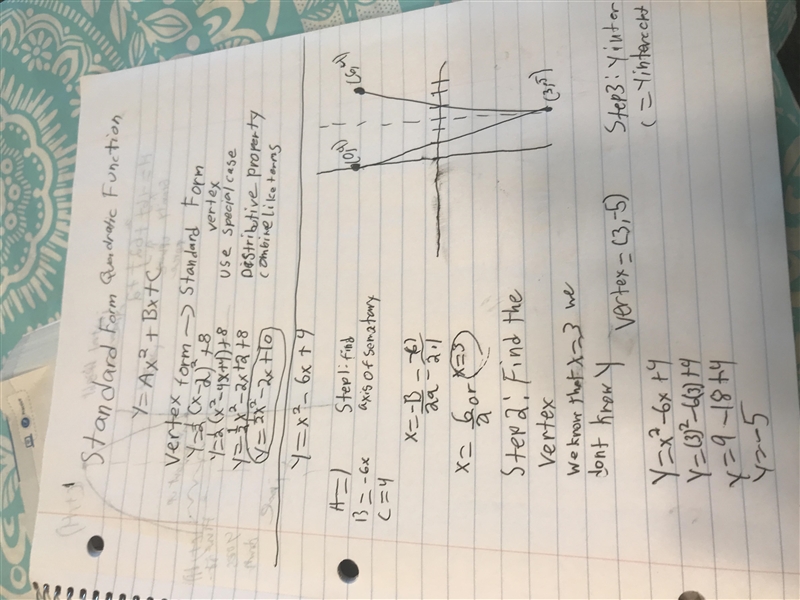 Standard Form Quadratic Function
Y=Ax² + Bx + C
Vertex form → Standard Form
Y=½(x-2)²+8 vertex
Y=½(x²-4x+4)+8 Use special case
Y=½x²-2x+2+8 Distributive property
Y=½x²-2x+10 Combine like terms
Y=x²-6x+4
A=1 Step1: Find
B=-6x axis of sematary
C=4
x=-B/2a -(-6)/2·1
x=6/2 or x=3
Step 2: Find the
Vertex
We know that x=3 we
dont know y vertex=(3,-5)
Y=x²-6x+4
Y=(3)²-6(3)+4
Y=9-18+4
Y=-5
(3,-5)
Step3: Yinter
C=Yinterecht